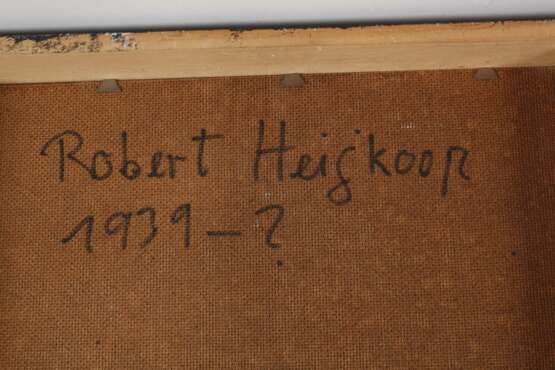 Robert Heijkoop
1939-?